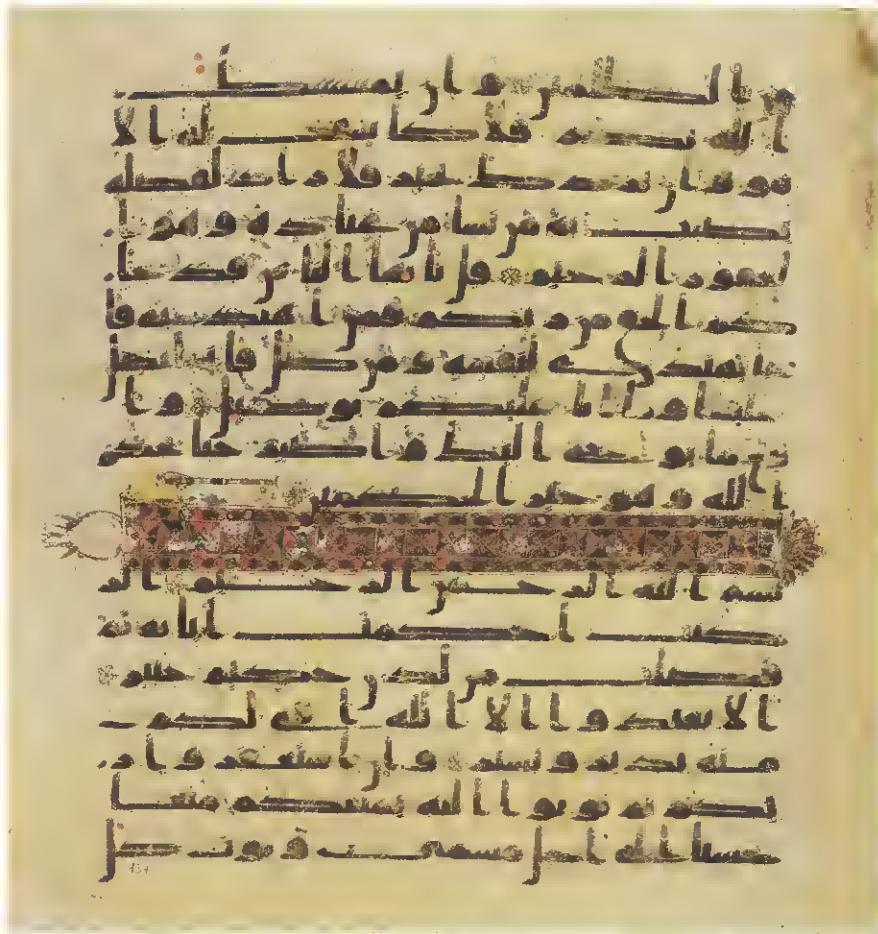 من الظلمين وان يمسسك
الله بضر فلا كاشف له الا
هو وان يردك بخير فلا راد لفضله
يصيب به من يشا من عباده وهو ا
لغفور الرحيم قل يايها الناس قد جا
كم الحق من ربكم فمن اهتدى فا
نما يهتدي لنفسه ومن ضل فانما يضل
عليها وما انا عليكم بوكيل وا
تبع ما يوحى اليك واصبر حتى يحكم
الله وهو خير الحكمين
بسم الله الرحمن الرحيم الر
كتب احكمت ايته ثم
فصلت من لدن حكيم خبير
الا تعبدوا الا الله انني لكم
منه نذير وبشير وان استغفروا ر
بكم ثم توبوا اليه يمتعكم متعا
حسنا الى اجل مسمى ويوت كل